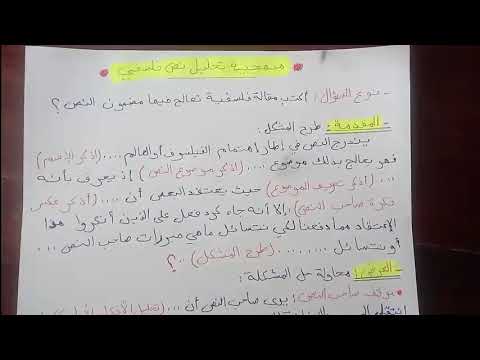 منهجية تحليل نص فلسفي
- نوع السؤال: اكتب مقالة فلسفية تعالج فيها مضمون النص؟
- المقدمة: طرح المشكل:
يندرج النص في إطار اهتمام الفيلسوف أو العالم .... (اذكر الإسم)
فهو يعالج بذلك موضوع .... (اذكر موضوع النص) إذ يعرف بأنه
.... (اذكر تعريف الموضوع) حيث يعتقد البعض أن .... (اذكر عكس
فكرة صاحب النص) إلا أنه جاء كرد فعل على الذين أنكروا هذا
الاعتقاد مما دفعنا لكي نتساءل ما هي مبررات صاحب النص ...
أو نتساءل ........ (طرح المشكل) ..؟
- العرض: محاولة حل المشكلة:
• موقف صاحب النص: يرى صاحب النص أن ...